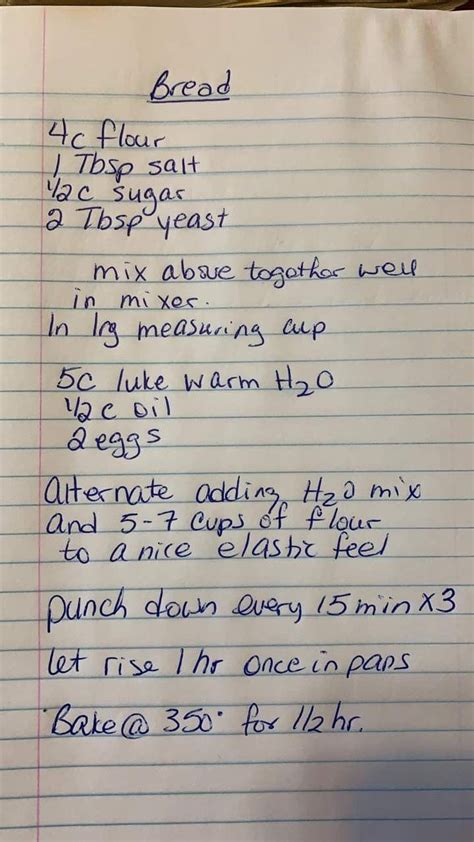 Bread
4c flour
1 Tbsp salt
1/2c sugar
2 Tbsp yeast
mix above together well
in mixer.
In lrg measuring cup
5c luke warm H2O
1/2 c oil
2 eggs
Alternate adding H2O mix
and 5-7 cups of flour
to a nice elastic feel
punch down every 15 min x3
let rise 1 hr once in pans
Bake @ 350° for 1/2 hr.